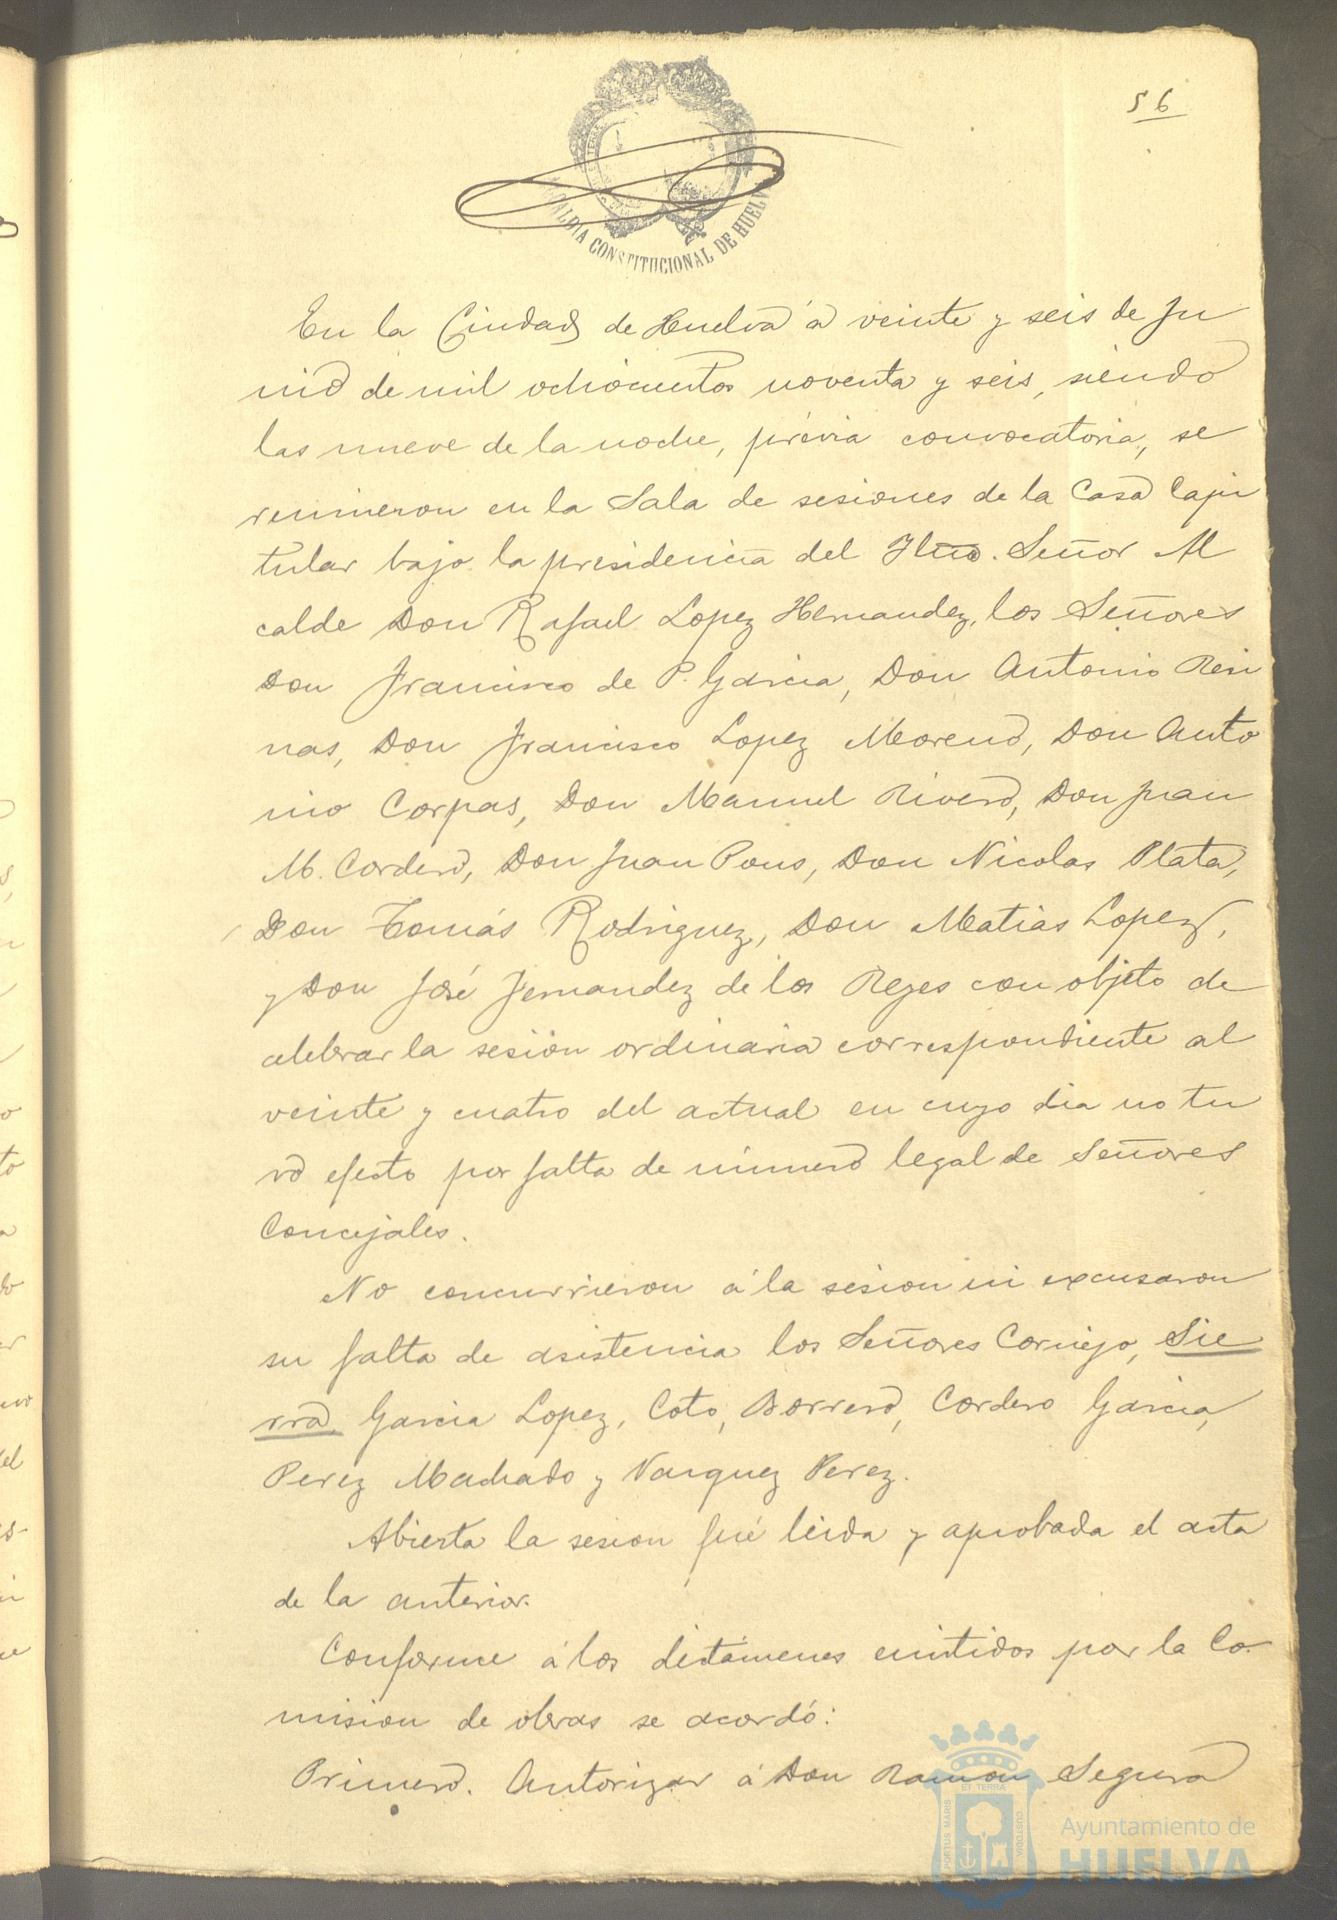 56
ALCALDIA CONSTITUCIONAL DE HUELVA
En la Ciudad de Huelva á veinte y seis de Ju
nio de mil ochocientos noventa y seis, siendo
las nueve de la noche, prévia convocatoria, se
reunieron en la Sala de sesiones de la Casa Capi
tular bajo la presidencia del Ilmo. Señor Al
calde Don Rafael Lopez Hernandez, los Señores
Don Francisco de P. Garcia, Don Antonio Resi
nas, Don Francisco Lopez Moreno, Don Anto
nio Corpas, Don Manuel Rivero, Don Juan
M. Cordero, Don Juan Pons, Don Nicolas Plata,
Don Tomás Rodriguez, Don Matias Lopez,
y Don José Fernandez de los Reyes con objeto de
celebrar la sesión ordinaria correspondiente al
veinte y cuatro del actual en cuyo dia no tu
vo efecto por falta de número legal de Señores
Concejales.
No concurrieron á la sesion ni excusaron
su falta de asistencia los Señores Cornejo, Sie
rra, Garcia Lopez, Coto, Borrero, Cordero Garcia,
Perez Machado y Vazquez Perez.
Abierta la sesion fué leida y aprobada el acta
de la anterior.
Conforme á los dictámenes emitidos por la Co-
mision de obras se acordó:
Primero. Autorizar á Don Ramon Segura
PORTUS MARIS ET TERRAE CUSTODIA
Ayuntamiento de
HUELVA